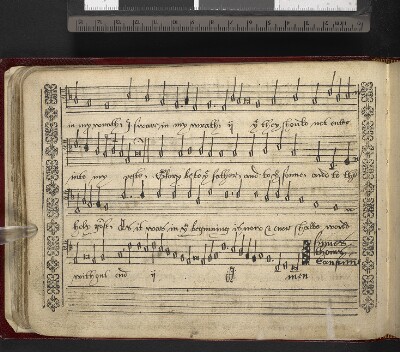 in my wrath: I sweare in my wrath: ij yͤ they should not enter
into my rest. Glory be to yͤ father, and to yͤ sonne: and to the
holy gost. As it was in yͤ beginning is nowe & ever shalbe world
without end ij men
finis.
Thomas